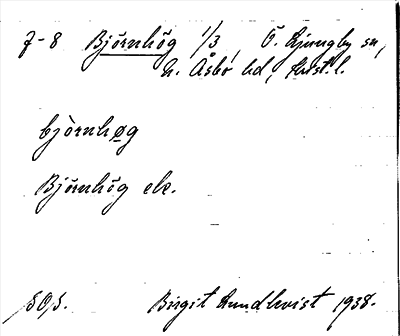 7-8 Björnhög 1/3, Ö. Ljungby sn,
N. Åsbo hd, Krist. l.
bjòrnhøg
Björnhög ek.
SOS. Birgit Lundkvist 1938.